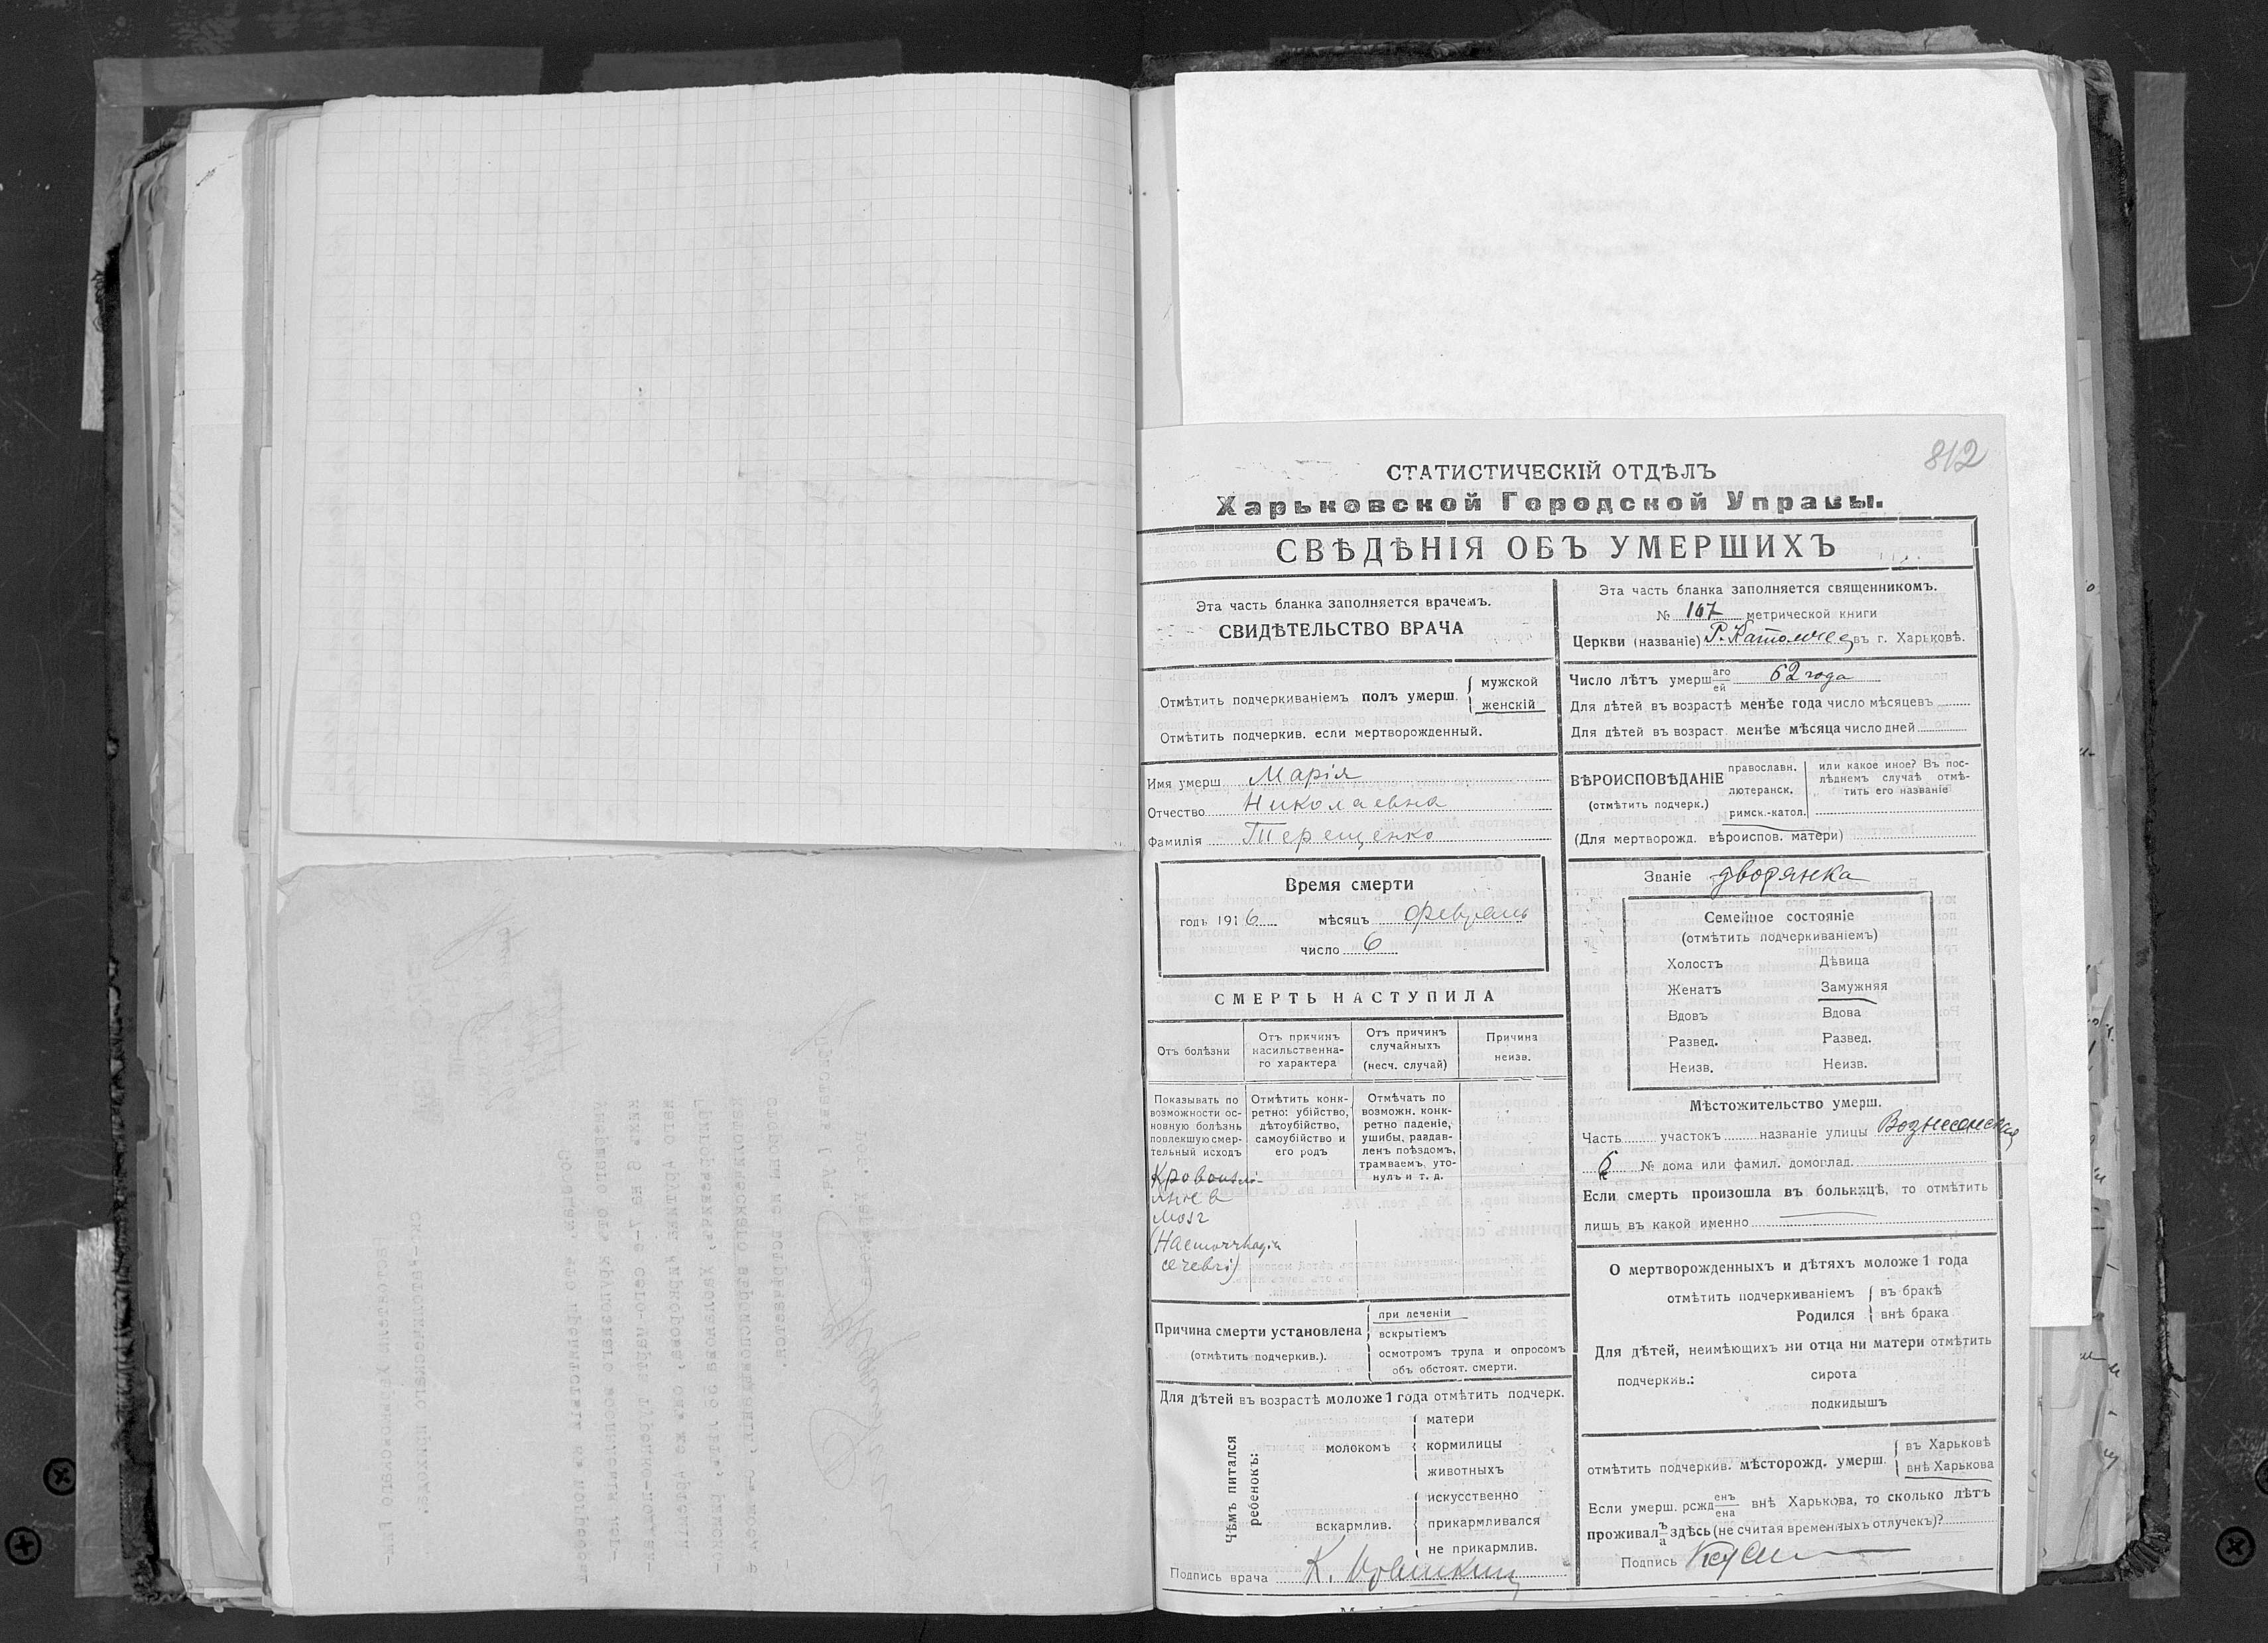 812
СТАТИСТИЧЕСКІЙ ОТДѢЛЪ
Харьковской Городской Управы.
СВѢДѢНІЯ ОБЪ УМЕРШИХЪ
Эта часть бланка заполняется врачемъ.
СВИДѢТЕЛЬСТВО ВРАЧА
Отмѣтить подчеркиваніемъ полъ умерш.
мужской
женскій
Отмѣтить подчеркив. если мертворожденный.
Имя умерш. Марія
Отчество Николаевна
Фамилія Терещенко
Время смерти
годъ 1916 мѣсяцъ Февраль
число 6
СМЕРТЬ НАСТУПИЛА
Отъ болѣзни
Отъ причинъ
насильственна-
го характера
Отъ причинъ
случайныхъ
(несч. случай)
Причина
неизв.
Показывать по
возможности ос-
новную болѣзнь
повлекшую смер-
тельный исходъ
Отмѣтить конк-
ретно: убійство,
дѣтоубійство,
самоубійство и
его родъ
Отмѣчать по
возможн. конк-
ретно паденіе,
ушибы, раздав-
ленъ поѣздомъ,
трамваемъ, уто-
нулъ и т. д.
Кровоизлі-
яніе в
мозг
(Haemorrhagia
cerebri)
Причина смерти установлена
(отмѣтить подчеркив.).
при леченіи
вскрытіемъ
осмотромъ трупа и опросомъ
объ обстоят. смерти.
Для дѣтей въ возрастѣ моложе 1 года отмѣтить подчерк.
Чѣмъ питался
ребенокъ:
молокомъ
матери
кормилицы
животныхъ
вскармлив.
искусственно
прикармливался
не прикармлив.
Подпись врача К.
Эта часть бланка заполняется священникомъ.
№ 167 метрической книги
Церкви (названіе) Р. Католичес въ г. Харьковѣ.
Число лѣтъ умерш аго ей 62 года
Для дѣтей въ возрастѣ менѣе года число мѣсяцевъ
Для дѣтей въ возраст. менѣе мѣсяца число дней
ВѢРОИСПОВѢДАНІЕ
(отмѣтить подчерк.)
православн.
лютеранск.
римск.-катол.
или какое иное? Въ пос-
лѣднемъ случаѣ отмѣ-
тить его названіе
(Для мертворожд. вѣроиспов. матери)
Званіе дворянка
Семейное состояніе
(отмѣтить подчеркиваніемъ)
Холостъ Дѣвица
Женатъ Замужняя
Вдовъ Вдова
Развед. Развед.
Неизв. Неизв.
Мѣстожительство умерш.
Часть участокъ названіе улицы Вознесенская
6 № дома или фамил. домовлад.
Если смерть произошла въ больницѣ, то отмѣтить
лишь въ какой именно
О мертворожденныхъ и дѣтяхъ моложе 1 года
отмѣтить подчеркиваніемъ
Родился
въ бракѣ
внѣ брака
Для дѣтей, неимѣющихъ ни отца ни матери отмѣтить
подчеркив.:
сирота
подкидышъ
отмѣтить подчеркив. мѣсторожд. умерш.
въ Харьковѣ
внѣ Харькова
Если умерш. рожд енъ ена внѣ Харькова, то сколько лѣтъ
проживал ъ а здѣсь (не считая временныхъ отлучекъ)?
Подпись